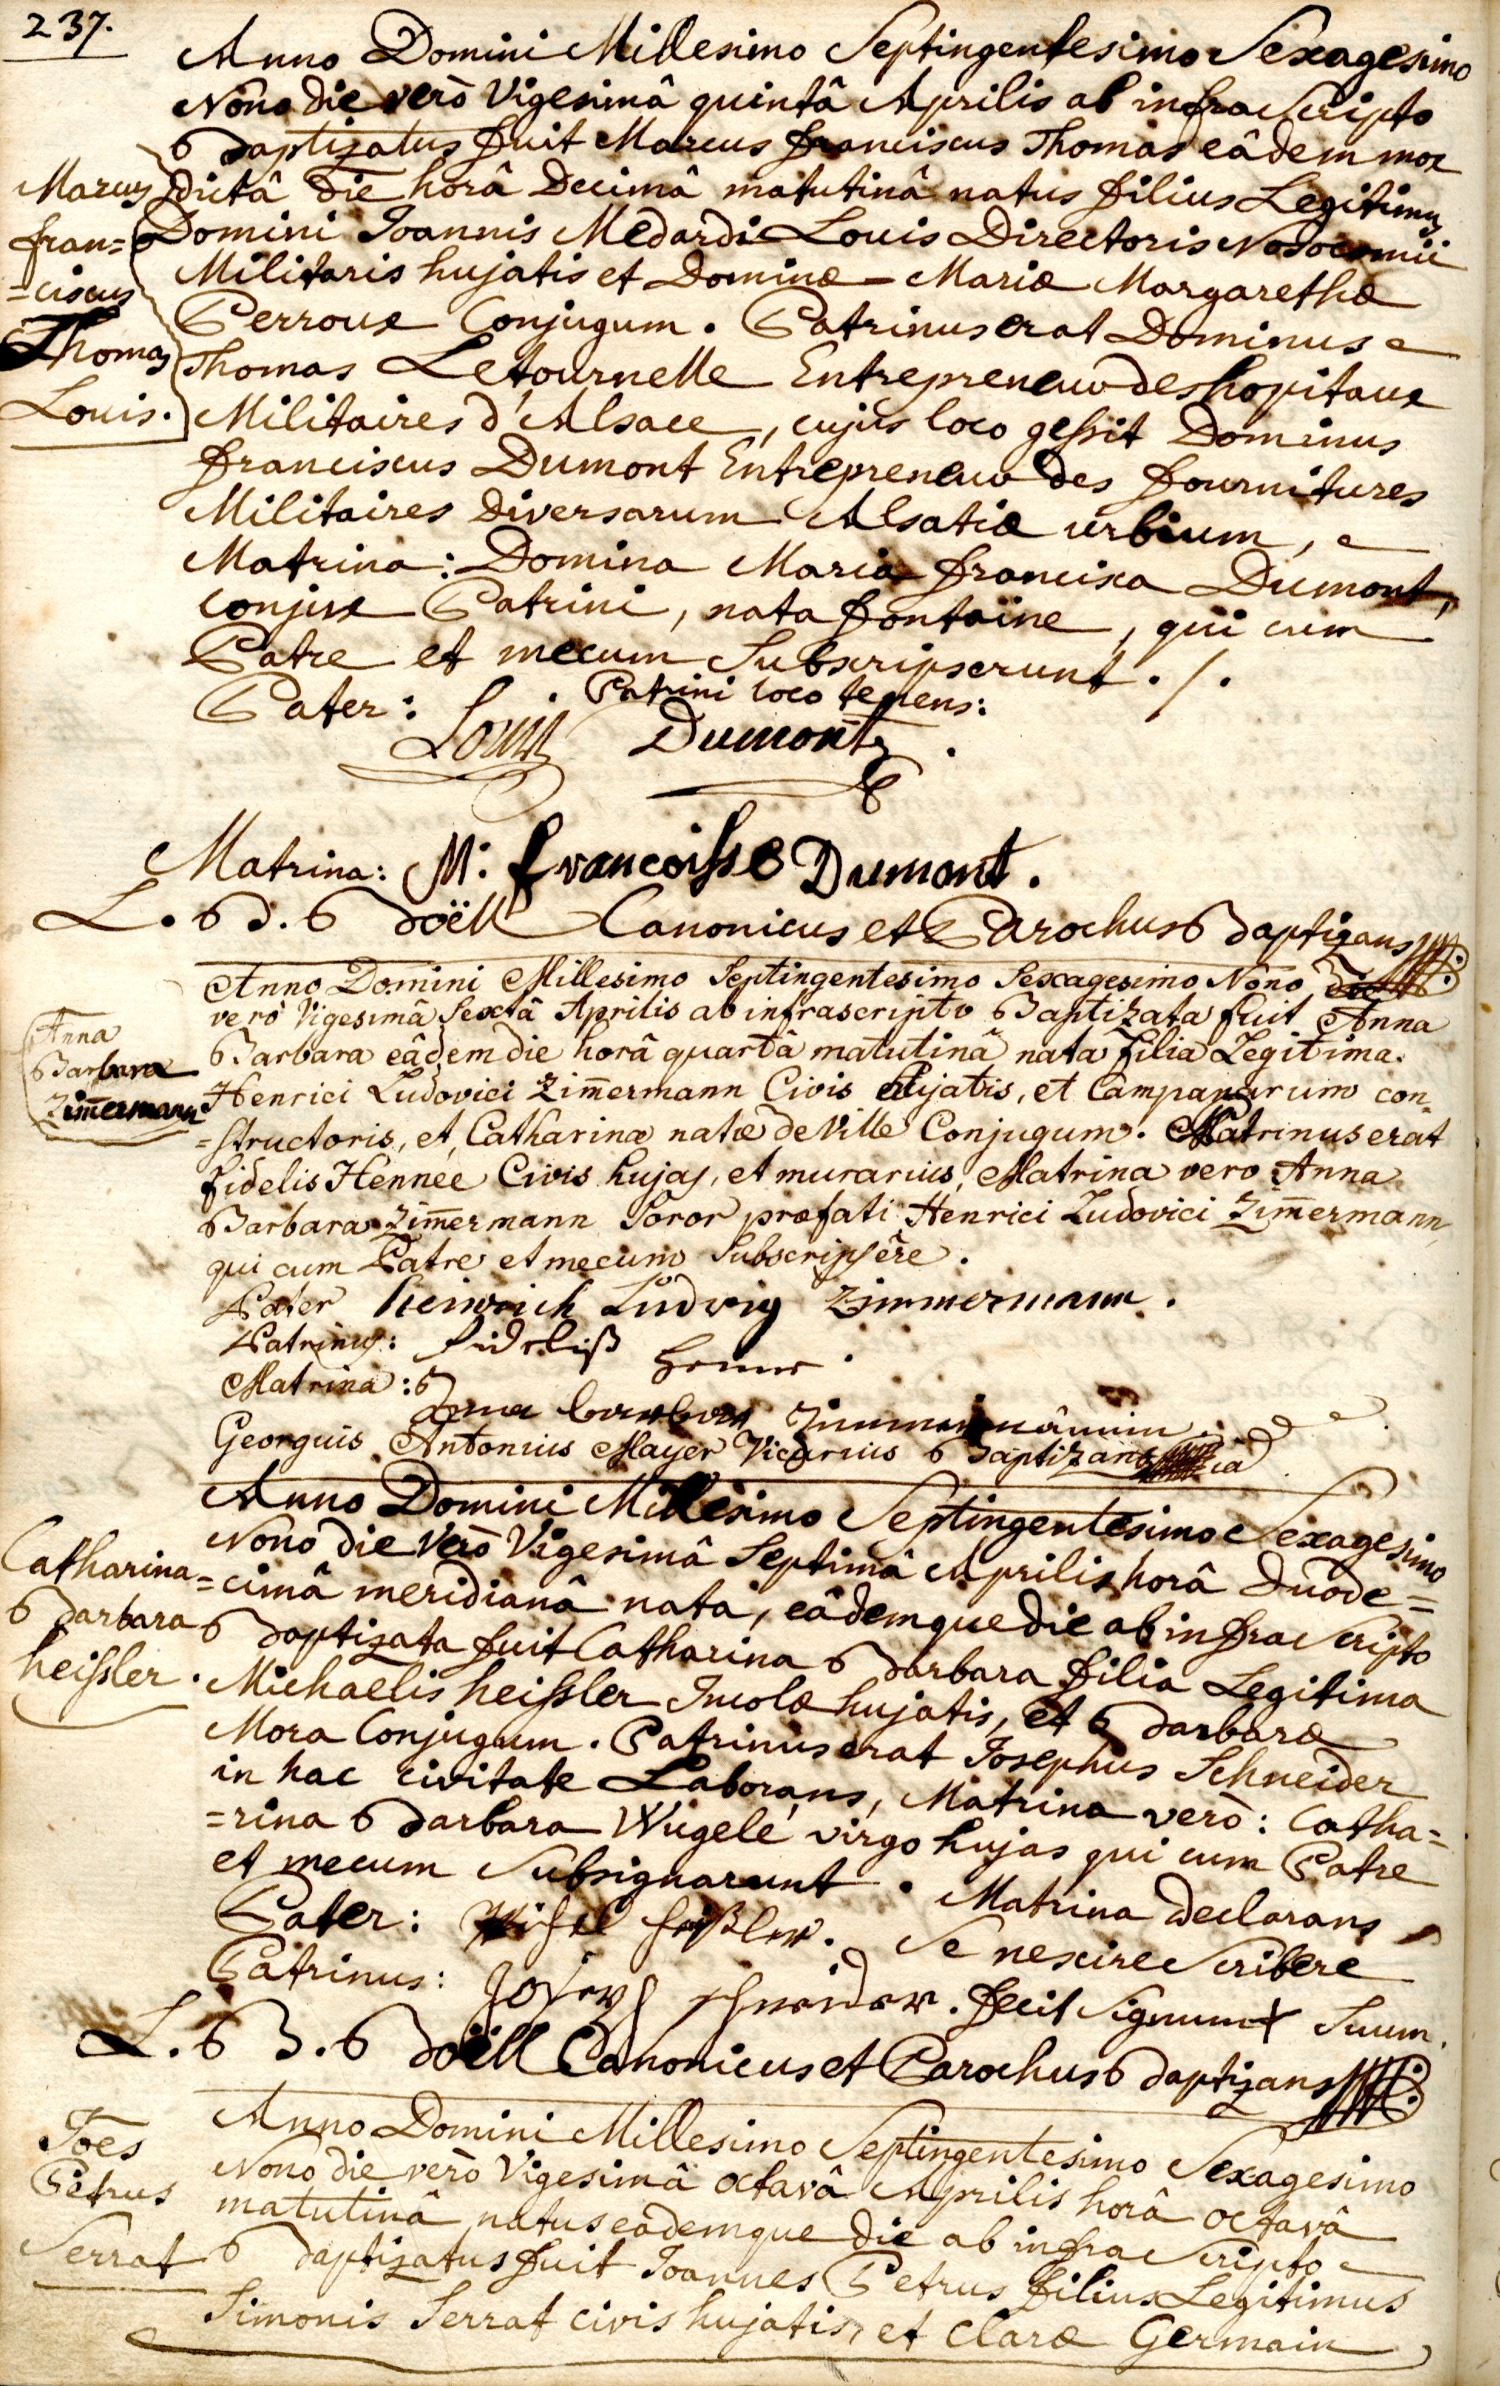 237.
Anno Domini Millesimo Septingentesimo Sexagesimo
Nono die verò Vigesimâ quintâ Aprilis ab infra Scripto
Baptizatus fuit Marcus franciscus Thomas eâdem mox
Marcus
fran=
=ciscus
Thomas
Louis.
dictâ die horâ Decimâ matutinâ natus filius Legitimus
Domini Joannis Medardi Louis Directoris Nosocomii
Militaris hujatis et Dominæ Mariæ Margarethæ
Perroux Conjugum. Patrinus erat Dominus
Thomas Letournelle Entrepreneur des hopitaux
Militaires d'Alsace, cujus loco gessit Dominus
franciscus Dumont Entrepreneur des fournitures
Militaires diversarum Alsatiæ urbium,
Matrina: Domina Maria francisca Dumont,
conjux Patrini, nata fontaine, qui cum
Patre et mecum Subscripserunt ./.
Pater: Louis
Patrini loco tenens:
Dumont
Matrina: M: francoisse Dumont.
L. B. Boëll Canonicus et Parochus Baptizans
Anno Domini Millesimo Septingentesimo Sexagesimo Nono die
vero Vigesimâ Sextâ Aprilis ab infrascripto Baptizata fuit Anna
Anna
Barbara
Zim̄ermann
Barbara eâdem die horâ quartâ matutinâ nata filia Legitima
Henrici Ludovici Zim̄ermann Civis hujatis, et Campanarum con
=structoris, et Catharinæ natæ de Ville Conjugum. Patrinus erat
fidelis Hennée Civis hujas, et murarius, Matrina vero Anna
Barbara Zim̄ermann Soror præfati Henrici Ludovici Zim̄ermann,
qui cum Patre et mecum Subscripsêre.
Pater Heinrich Ludwig Zimmermann.
Patrinus: fideliß
Matrina: Anna barbara
Georguis Antonius Mayer Vicarius Baptizans
Anno Domini Millesimo Septingentesimo Sexagesimo
Nono die Verò Vigesimâ Septimâ Aprilis horâ Duode=
Catharina
Barbara
heissler.
=cimâ meridianâ nata, eâdemque die ab infra Scripto
Baptizata fuit Catharina Barbara filia Legitima
Michaelis heissler Incolæ hujatis, et Barbaræ
Mora Conjugum. Patrinus erat Josephus Schneider
in hac civitate Laborans, Matrina verò: Catha=
=rina Barbara Wugelé virgo hujas qui cum Patre
et mecum Subsignarunt. Matrina declarans
Pater: Michel heißler. Se nescire Scribere
Patrinus: Joseph schneider. fecit Signum + Suum.
L. B. Boëll Canonicus et Parochus Baptizans
Anno Domini Millesimo Septingentesimo Sexagesimo
Joes
Petrus
Serrat
Nono die verò Vigesimâ octavâ Aprilis horâ octavâ
matutinâ natus eâdemque die ab infra Scripto
Baptizatus fuit Joannes Petrus filius Legitimus
Simonis Serrat civis hujatis, et Claræ Germain